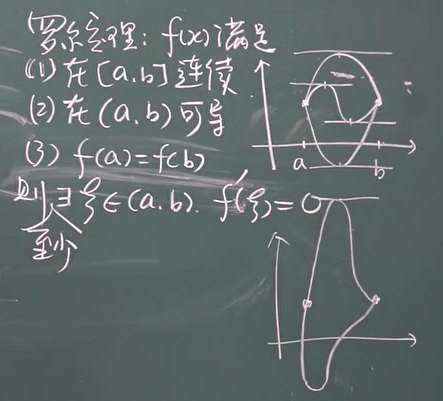 罗尔定理: f(x)满足
(1) 在[a.b]连续
(2) 在(a.b)可导
(3) f(a)=f(b)
则∃ξ∈(a.b). f′(ξ)=0
至少
a
b